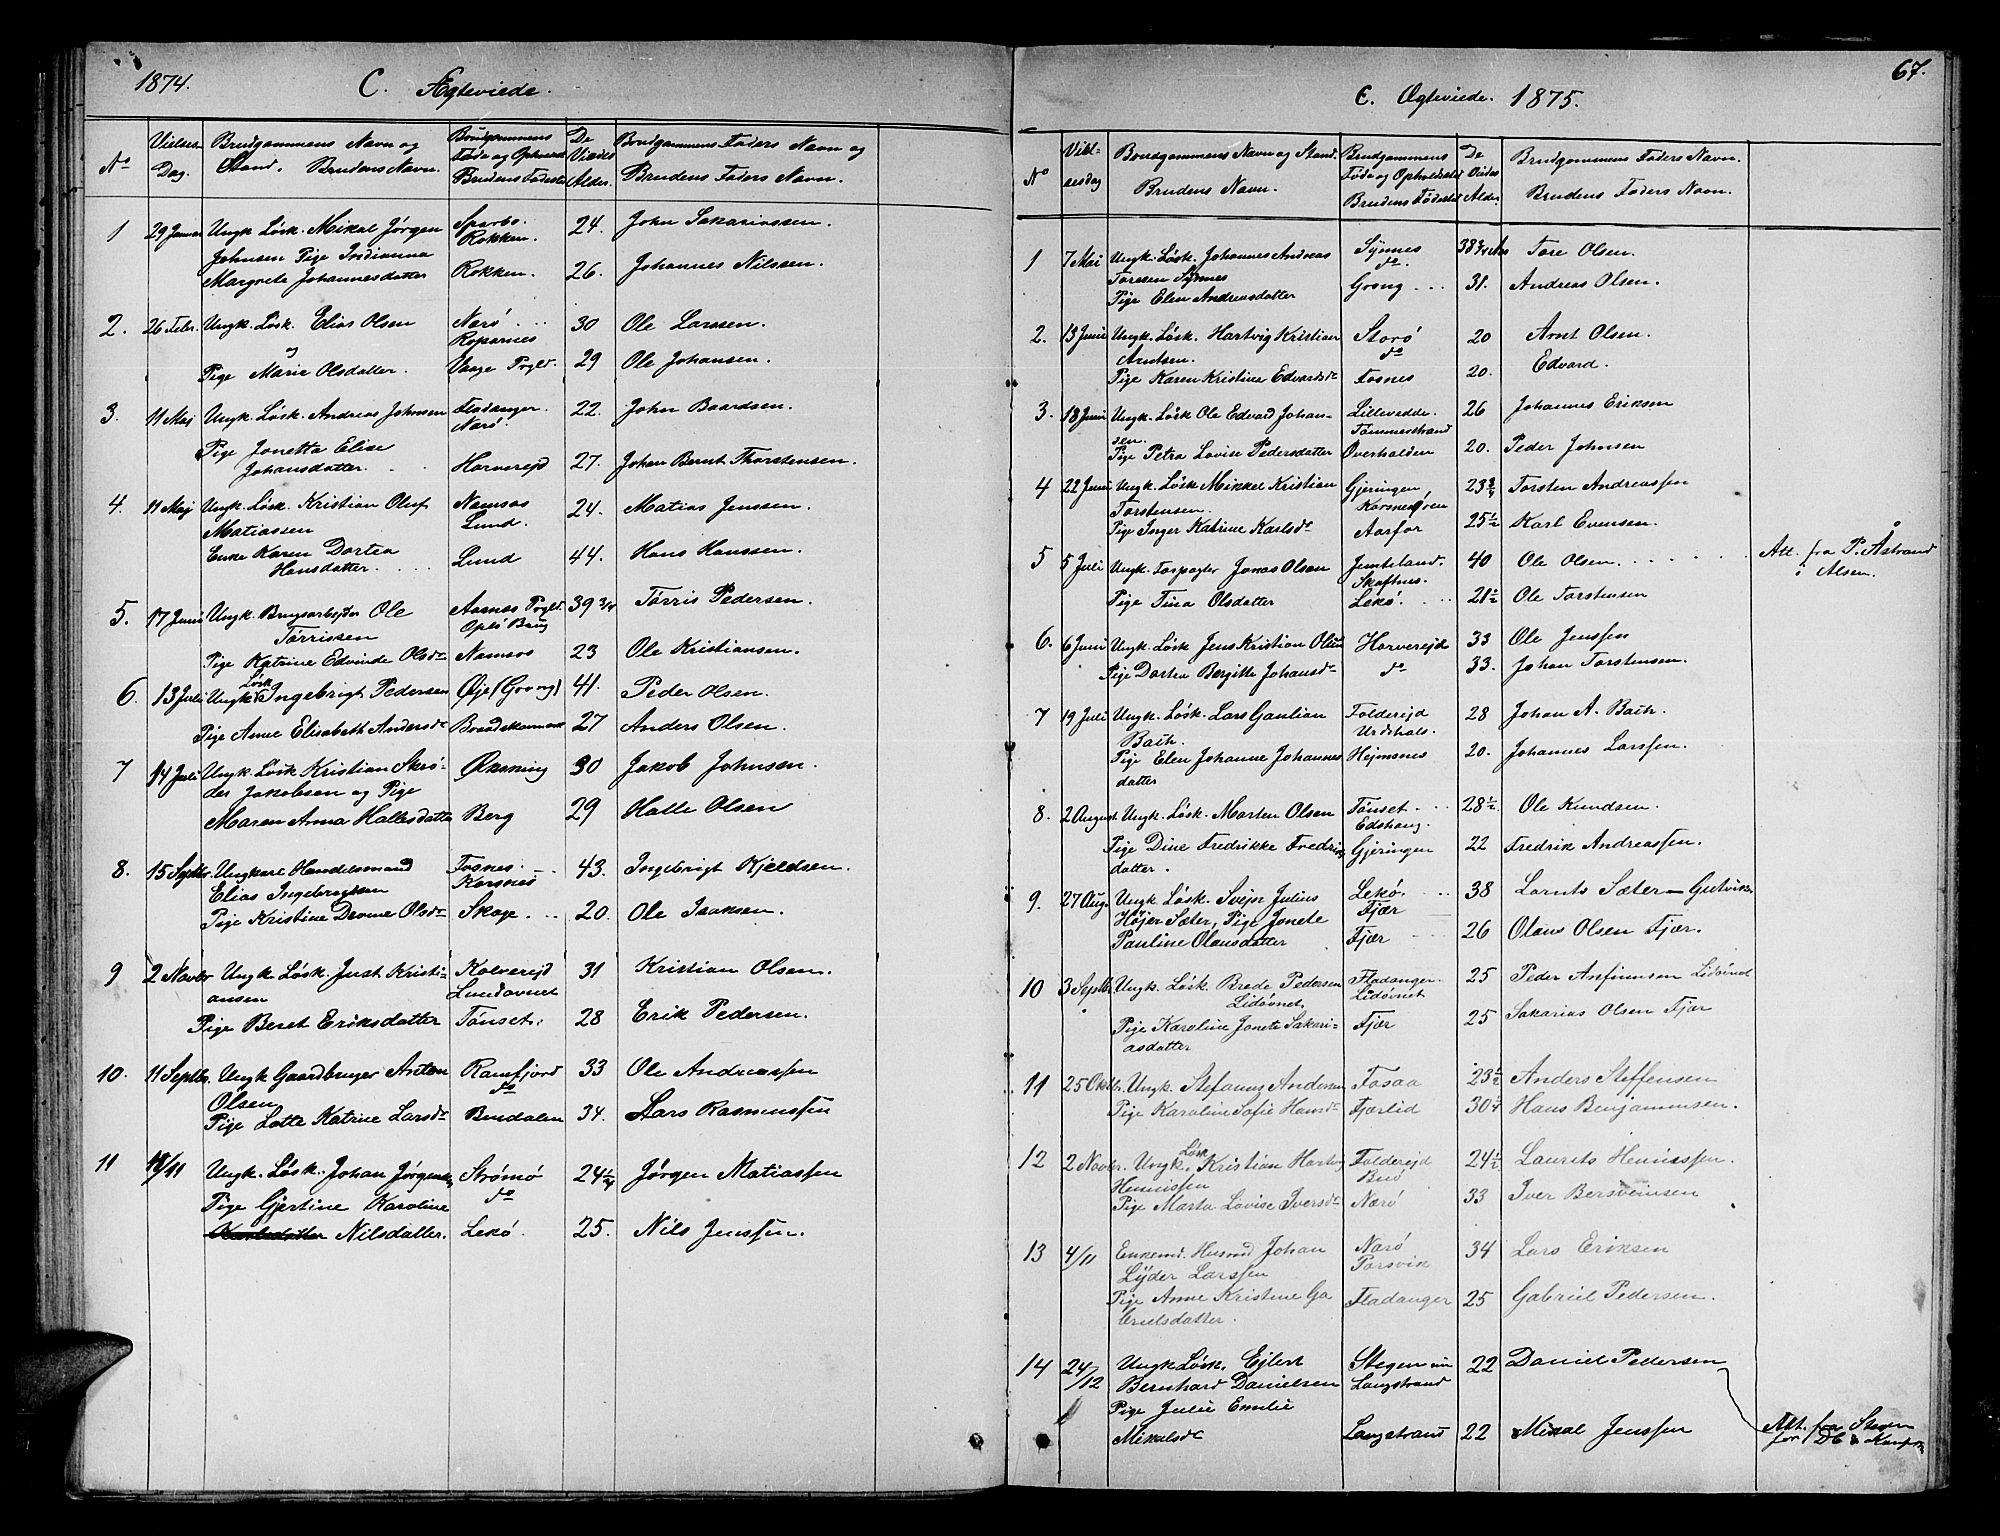 1874.
C. Ægteviede.
No
Vielses
Dag.
Brudgommens Navn og
Stand. Brudens Navn.
Brudgommens
Føde og Opholds
Brudens Fødested
De
Viedes
Alder.
Brudgommens Faders Navn og
Brudens Faders Navn.
1 29 Januar Ungk. Løsk. Mikal Jørgen Sparbo. 24. John Sakariassen.
Johnsen Pige Rokken.
Margrete Johannesdatter Rokken. 26. Johannes Nilssen.
2. 26 Febr. Ungk. Løsk. Elias Olsen Nærø. 30 Ole Larssen.
og Roparnes
Pige Marie Olsdatter. Vaage Prgld. 29 Ole Johansen.
3. 11 Maj Ungk. Løsk. Andreas Johnsen Fladanger. 22. John Baardsen.
Nærø.
Pige Jonetta Elise
Johansdatter. Horverejd 27. Johan Bernt Thorstensen.
4. 11 Maj Ungk. Løsk. Kristian Oluf Namsos 24. Matias Jenssen.
Matiassen Lund.
Enke Karen Dortea Lund 44. Hans Hanssen.
Hansdatter.
5. 17 Juni Ungk. Brugsarbejder Ole Aasnes Prgld. 39 3/4 Tørris Pedersen.
Tørrissen Oplø Brug
Pige Katrine Edvinde Olsdr Namsos 23 Ole Kristiansen.
6. 13 Juli Ungk. Løsk Ingebrigt Pedersen Øje (Grong) 41. Peder Olsen.
Pige Anne Elisabeth Andersdr 27 Anders Olsen.
7 14 Juli Ungk. Løsk Kristian Skrø- Øksning 30 Jakob Johnsen.
der Jakobsen og Pige
Maren Anna Hallesdatter Berg 29 Halle Olsen
8. 15 Septbr. Ungkarl Handelsmand Fosnes. 43. Ingebrigt Kjeldsen.
Elias Ingebrigtsen Korsnes
Pige Kristine Olsdr Skage. 20. Ole Isaksen.
9 2 Novbr Ungk. Løsk. Just Kristi- Kolverejd 31 Kristian Olsen.
ansen Lundavnet
Pige Beret Eriksdatter Tønset. 28 Erik Pedersen.
10. 11 Septbr. Ungk Gaardbruger Anton Ranfjord 33 Ole Andreassen
Olsen do
Pige Lotte Katrine Larsdr Bindalen 34. Lars Rasmussen
11 11/11 Ungk. Løsk. Johan Jørgensen Strømø 24 1/4 Jørgen Matiassen
Pige Gjertine Karoline do
Nilsdatter. Lekø. 25. Nils Jenssen.
67.
C. Ægteviede. 1875.
No
Viel-
sesdag
Brudgommens Navn og Stand.
Brudens Navn.
Brudgommens
Føde og Opholdssted
Brudens Fødested
De
Viedes
Alder.
Brudgommens Faders Navn.
Brudens Faders Navn.
1 7 Maj Ungk. Løsk. Johannes Andreas Synnes 38 3/4 Tore Olsen.
Toresen Synnes do.
Pige Elen Andreasdatter Grong 31. Andreas Olsen.
2. 13 Juni Ungk. Løsk. Hartvig Kristian Storø 20 Arnt Olsen.
Arntsen. do
Pige Karen Kristine Edvardsdr Fosnes 20. Edvard.
3. 18 Juni Ungk. Løsk Ole Edvard Johan- Lillevedde. 26 Johannes Eriksen
sen. Tømmerstrand
Pige Petra Lovise Pedersdatter Overhalden 20. Peder Johnsen
4 22 Juni Ungk. Løsk Mikkel Kristian Gjeringen 23 3/4 Torsten Andreassen
Torstensen.
Pige Inger Katrine Karlsdr Aarfor 25 1/2 Karl Evensen.
5 5 Juli Ungk. Forpagter Jonas Olson Jemteland. 40 Ole Olsen. Att. fra P. Åstrand
Skaftnes. i Alsen.
Pige Tina Olsdatter Lekø. 21 1/2 Ole Torstensen
6. 6 Juni Ungk. Løsk Jens Kristian Olsen Horverejd 33 Ole Jenssen
Pige Dortea Bergitte Johansdr do 33. Johan Torstensen.
7 19 Juli Ungk. Løsk. Lars Gautian Folderejd 28 Johan A. Bach.
Bach. Urdshals.
Pige Elen Johanne Johannes Hejmsnes 20. Johannes Larssen.
datter
8. 2 August Ungk. Løsk. Morten Olsen Tønset. 28 1/2 Ole Knudsen.
Edshaug.
Pige Dine Fredrikke Fredriks Gjeringen 22 Fredrik Andreassen.
datter.
9. 27 Aug. Ungk. Løsk. Svejn Julius Lekø. 38 Lornts Sæter - Gutvik
Højer Sæter, Pige Jonete Fjær
Pauline Olausdatter Fjær 26 Olaus Olsen Fjær.
10 3 Septbr. Ungk. Løsk. Brede Pedersen Fladanger. 25 Peder Anfinnsen Lidøvnet
Lidøvnet Lidøvnet
Pige Karoline Jonete Sakari- Fjær 25 Sakarias Olsen Fjær
asdatter
11 25 Oktbr. Ungk. Stefanus Andersen Fosaa 23 1/2 Anders Steffensen
Pige Karoline Sofie Hansdr Fjærlid 30 1/4 Hans Benjaminsen.
12 2 Novbr. Ungk. Løsk Kristian Hartvig Folderejd 24 1/2 Laurits Henrissen.
Hennissen
Pige Marta Lovise Iversdr Nærø 33 Iver Bersveinsen
13 4/11 Enkemd. Husmd Johan Nærø 34 Lars Eriksen
Lyder Larssen Torsvik
Pige Anne Kristine Ga Fladanger 25 Gabriel Pedersen.
brielsdatter.
14 24/12 Ungk Løsk. Ejlert Stegen 22 Daniel Pedersen
Bernhard Danielsen Langstrand
Pige Julie Emelie
Mikalsdr Langstrand 22 Mikal Jenssen Att. fra Stegen